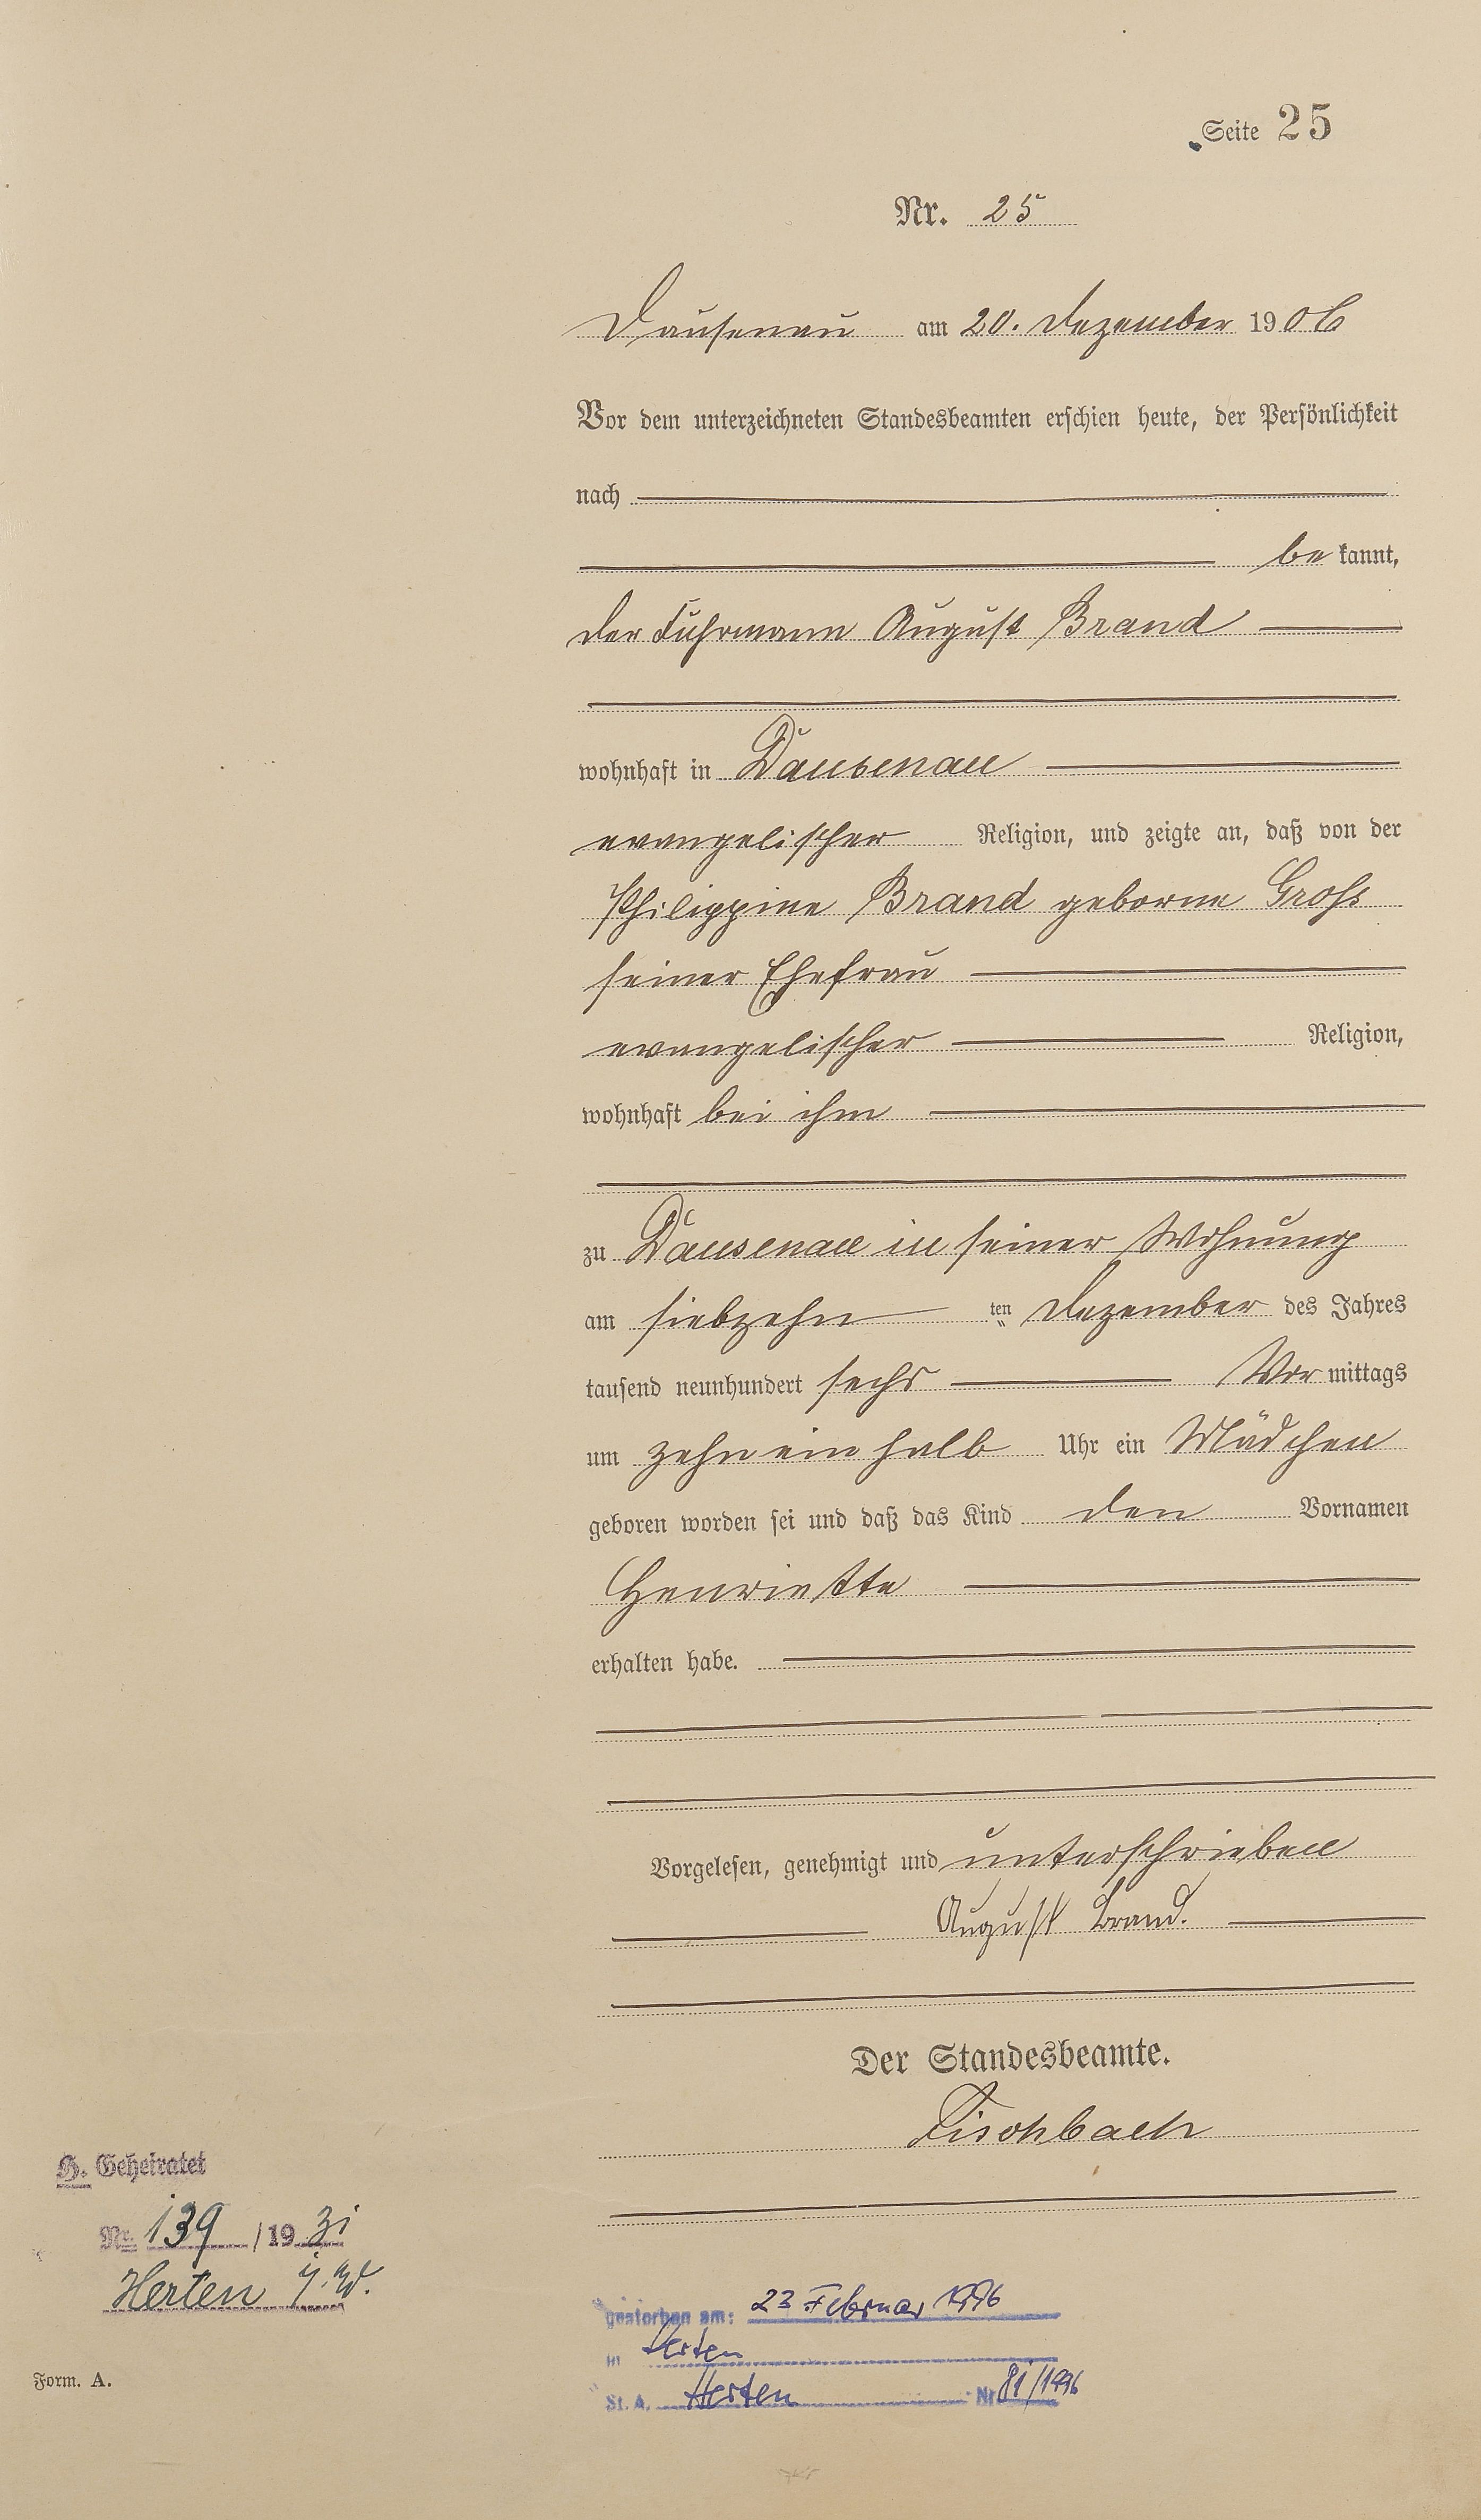 Seite 25
Nr. 25
Dausenau am 20. Dezember 1906
Vor dem unterzeichneten Standesbeamten erschien heute, der Persönlichkeit
nach
be kannt,
der Fuhrmann August Brand
wohnhaft in Dausenau
evangelischer Religion, und zeigte an, daß von der
Philippine Brand geborne Groß
seiner Ehefrau
evangelischer Religion,
wohnhaft bei ihm
zu Dausenau in seiner Wohnung
am siebzehn ten Dezember des Jahres
tausend neunhundert sechs Vor mittags
um zehn ein halb Uhr ein Mädchen
geboren worden sei und daß das Kind den Vornamen
Henriette
erhalten habe.
Vorgelesen, genehmigt und unterschrieben
August Brand.
Der Standesbeamte.
Fischbach
H. Geheiratet
Nr. 139 /1931
Herten i. W.
gestorben am: 23 Februar 1996
in Herten
St. A. Herten Nr 81/1996
Form. A.